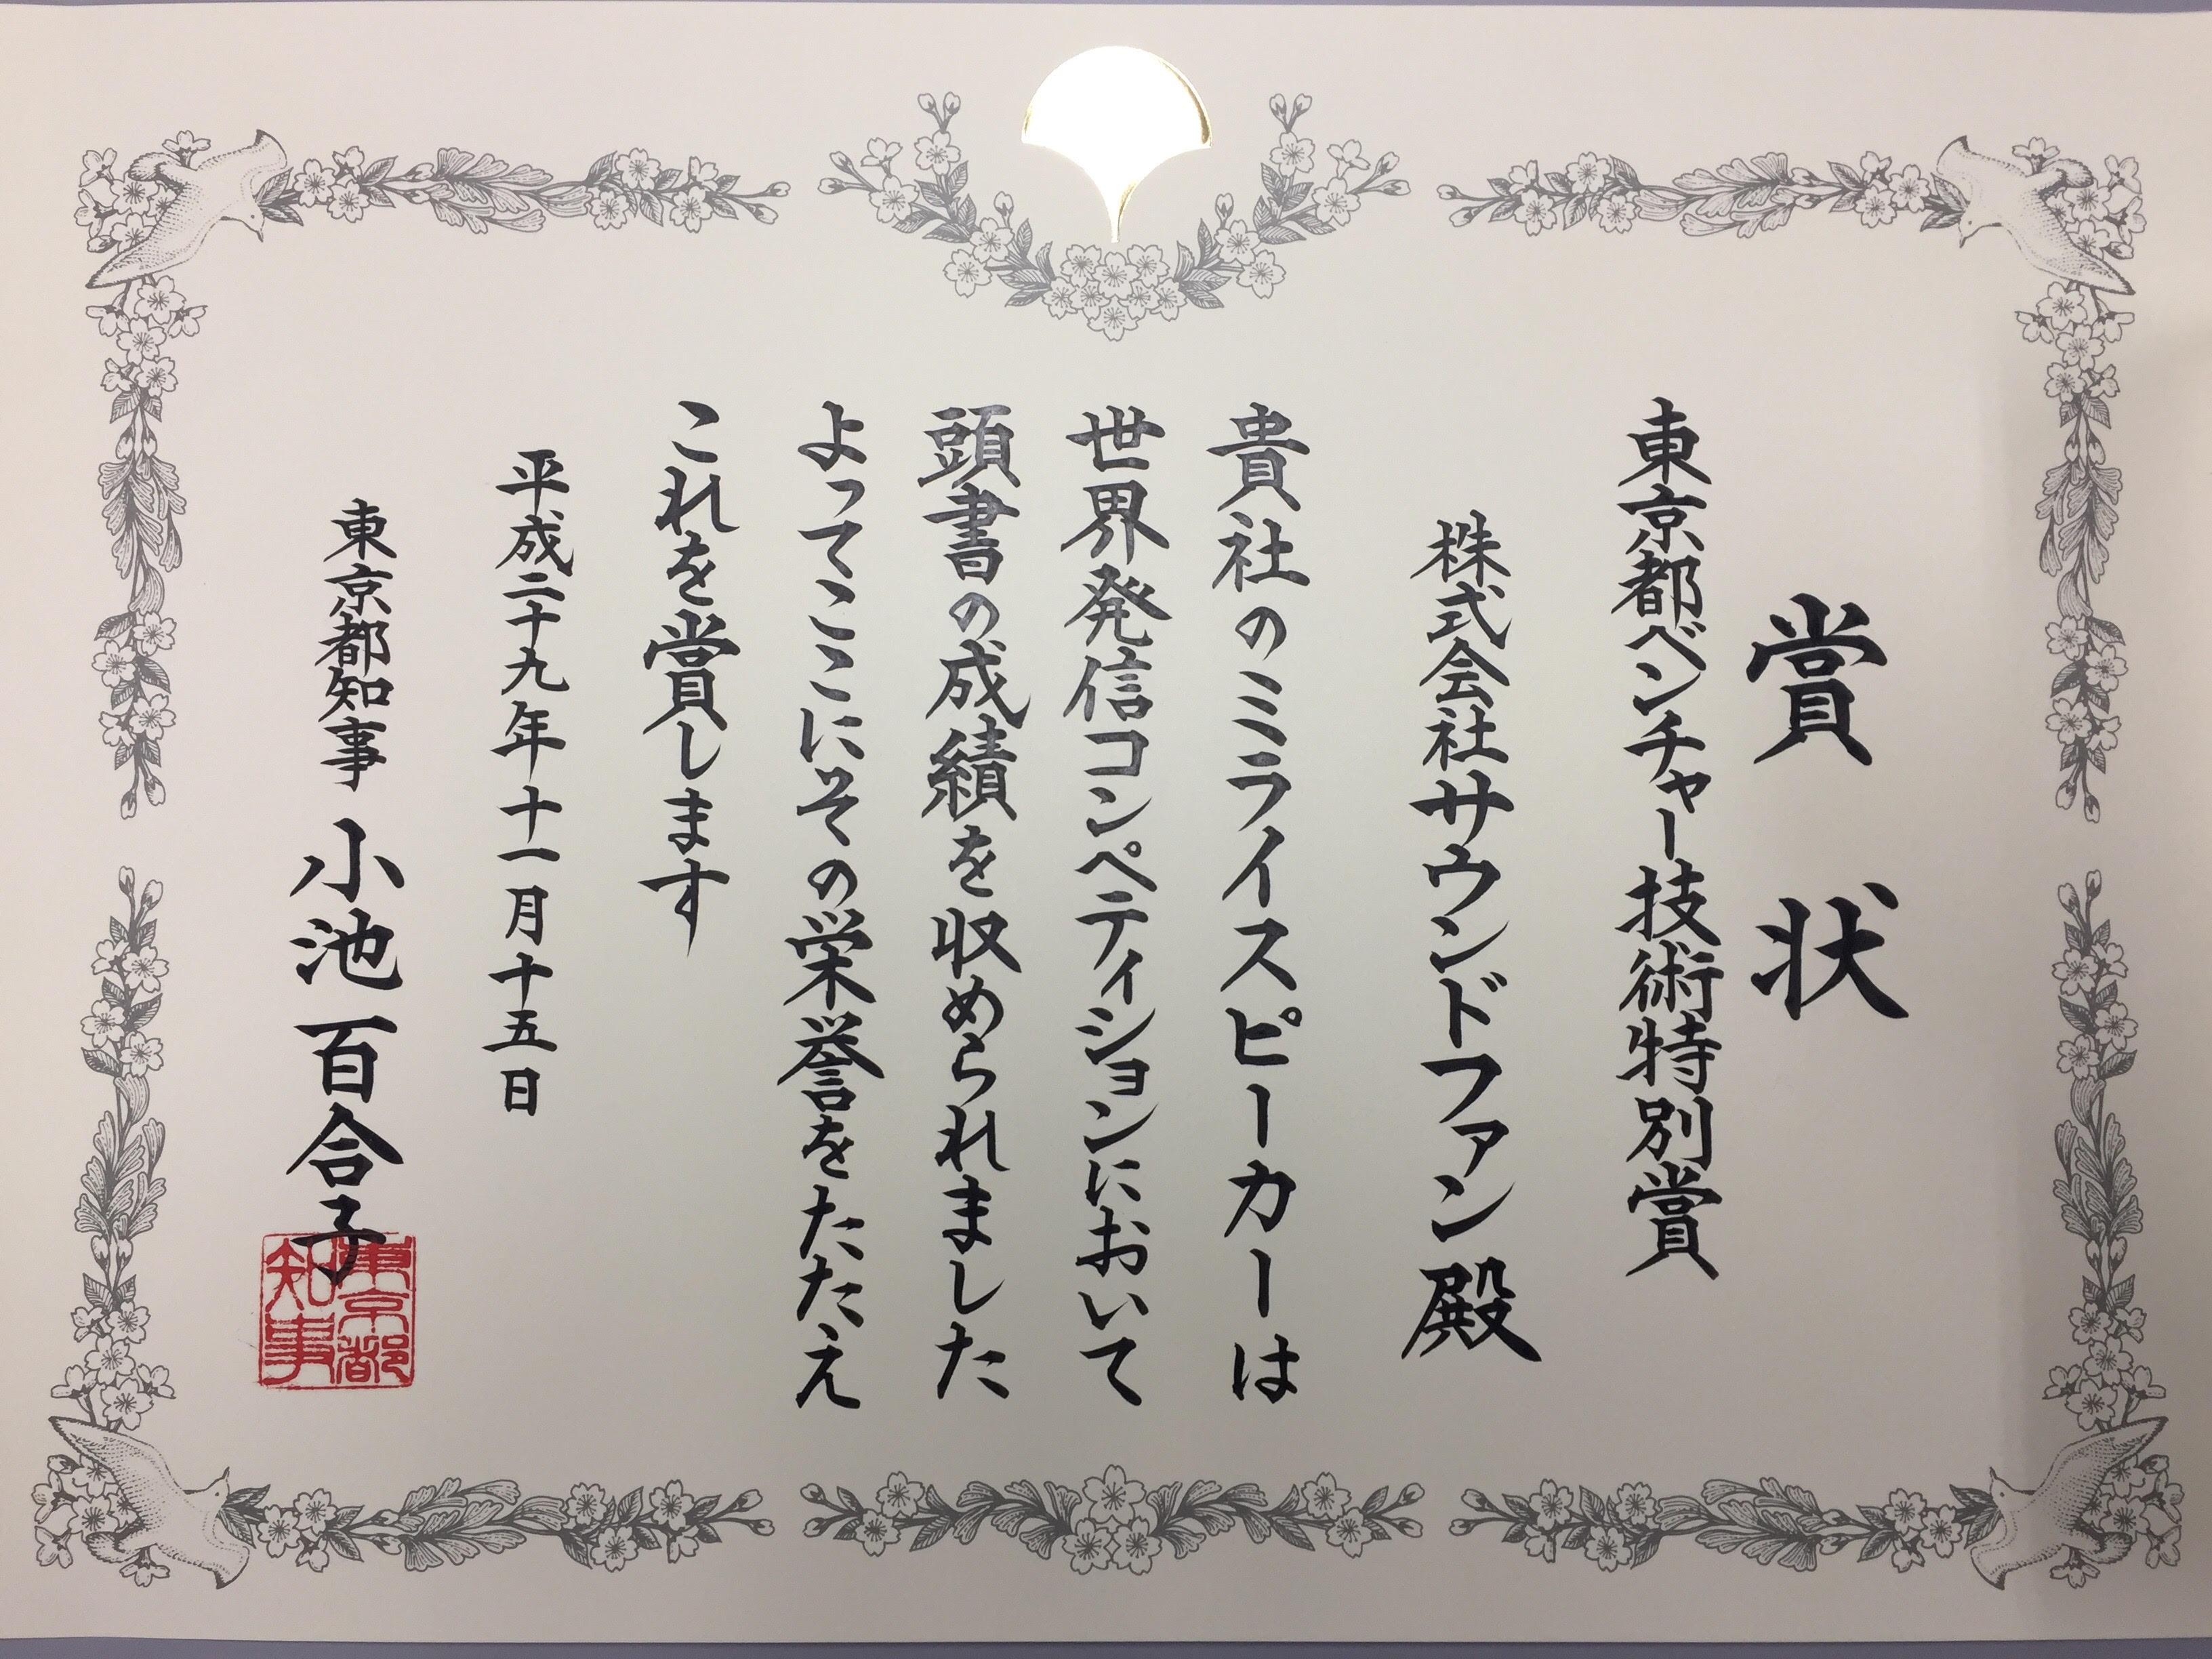 賞状
東京都ベンチャー技術特別賞
株式会社サウンドファン殿
貴社のミライスピーカーは
世界発信コンペティションにおいて
頭書の成績を収められました
よってここにその栄誉をたたえ
これを賞します
平成二十九年十一月十五日
東京都知事 小池百合子
東京都
知事